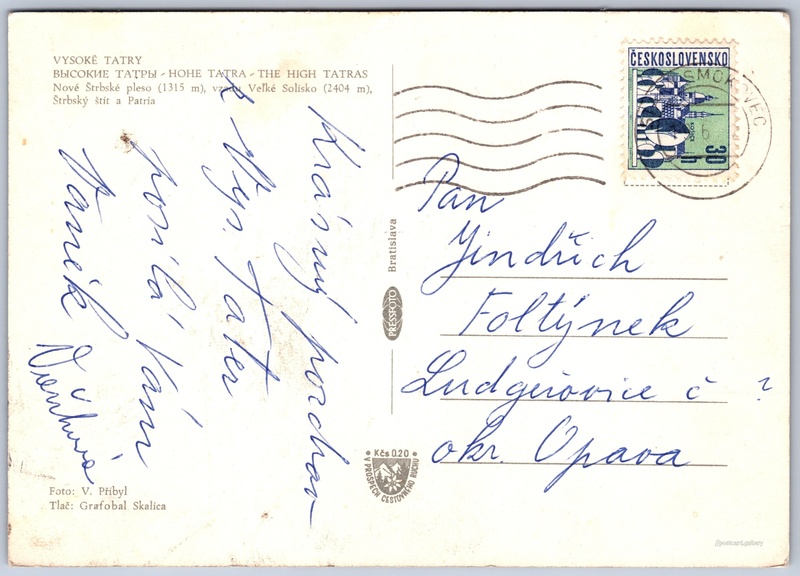 VYSOKÉ TATRY
ВЫСОКИЕ ТАТРЫ - HOHE TATRA - THE HIGH TATRAS
Nové Štrbské pleso (1315 m), vzadu Veľké Solisko (2404 m),
Štrbský štít a Patria
Krásný pozdrav
z Vys. Tater
posílá Vám
Vaněk
Foto: V. Přibyl
Tlač: Grafobal Skalica
Bratislava
PRESSFOTO
Kčs 0.20
V PROSPECH CESTOVNÉHO RUCHU
ČESKOSLOVENSKO
30 h
SMOKOVEC
6
Pan
Jindřich
Foltýnek
Ludgeřovice č ?
okr. Opava